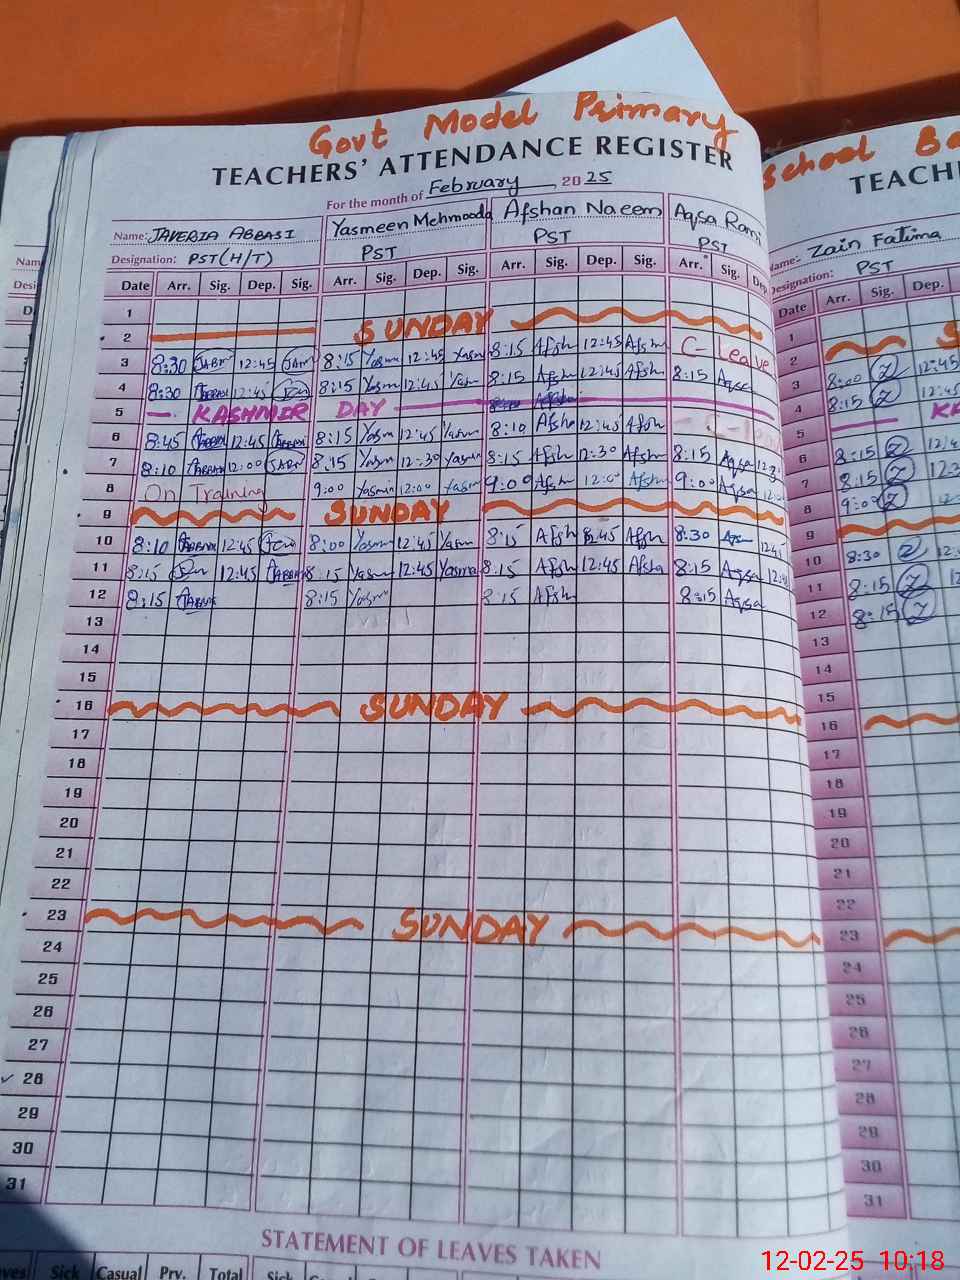 Govt Model Primary
School Ba
TEACHERS' ATTENDANCE REGISTER
TEACH
For the month of February, 2025
Name: JAVERIA ABBASI Yasmeen Mehmooda Afshan Naeem Aqsa Rani
Name: Zain Fatima
Designation: PST(H/T) PST PST PST
Designation: PST
Date Arr. Sig. Dep. Sig. Arr. Sig. Dep. Sig. Arr. Sig. Dep. Sig. Arr. Sig. Dep.
Date Arr. Sig. Dep.
1
2 SUNDAY
3 8:30 12:45 8:15 Yasm 12:45 Yasm 8:15 Afsh 12:45 Afshn C- Leave
4 8:30 12:45 8:15 Yasm 12:45 Yasm 8:15 Afsh 12:45 Afsh 8:15 Aqsa
5 KASHMIR DAY
6 8:45 12:45 8:15 Yasm 12:45 Yasm 8:10 Afsha 12:45 Afsh
7 8:10 12:00 8:15 Yasm 12:30 Yasmin 8:15 Afsh 12:30 Afsh 8:15 Aqsa 12:3
8 On Training 9:00 Yasmin 12:00 Yasm 9:00 Afsh 12:0 Afsh 9:00 Aqsa 12:0
9 SUNDAY
10 8:10 12:45 8:00 Yasm 12:45 Yasm 8:15 Afsh 12:45 Afsh 8:30 12:45
11 8:15 12:45 8:15 Yasm 12:45 Yasma 8:15 Afsh 12:45 Afsha 8:15 Aqsa 12:4
12 8:15 8:15 Yasm 8:15 Afsh 8:15 Aqsa
13
14
15
16 SUNDAY
17
18
19
20
21
22
23 SUNDAY
24
25
26
27
28
29
30
31
1
2
3 8:00 12:45
4 8:15 12:45
5 KA
6 8:15 12:4
7 8:15 12:3
8 9:00 12
9
10 8:30 12:
11 8:15 12
12 8:15
13
14
15
16
17
18
19
20
21
22
23
24
25
26
27
28
29
30
31
STATEMENT OF LEAVES TAKEN
Sick Casual Prv. Total Sick
12-02-25 10:18